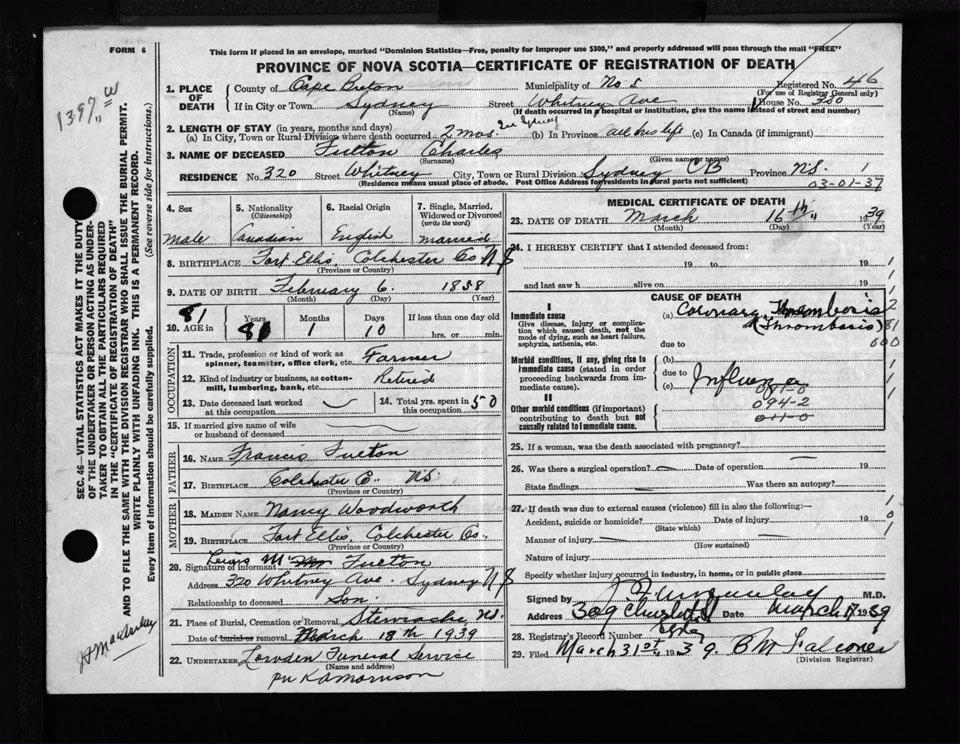 FORM 6
This form if placed in an envelope, marked "Dominion Statistics—Free, penalty for improper use $300," and properly addressed will pass through the mail "FREE"
PROVINCE OF NOVA SCOTIA—CERTIFICATE OF REGISTRATION OF DEATH
1397 w
1. PLACE OF DEATH
County of Cape Breton Municipality of No 5 Registered No. 46
(For use of Registrar General only)
If in City or Town Sydney Street Whitney Ave House No. 320
(Name) (If death occurred in a hospital or institution, give the name instead of street and number)
2. LENGTH OF STAY (in years, months and days)
(a) In City, Town or Rural Division where death occurred 2 mos. In Sydney (b) In Province all his life (c) In Canada (if immigrant)
3. NAME OF DECEASED Fulton Charles
(Surname) (Given name or names)
RESIDENCE No. 320 Street Whitney City, Town or Rural Division Sydney CB Province N.S. 1
(Residence means usual place of abode. Post Office Address for residents in rural parts not sufficient)
03-01-37
4. Sex 5. Nationality (Citizenship) 6. Racial Origin 7. Single, Married, Widowed or Divorced (write the word)
Male Canadian English married
8. BIRTHPLACE Fort Ellis, Colchester Co N S
(Province or Country)
9. DATE OF BIRTH February 6. 1858
(Month) (Day) (Year)
81
10. AGE in Years Months Days If less than one day old
81 1 10 hrs. or min.
OCCUPATION
11. Trade, profession or kind of work as spinner, teamster, office clerk, etc. Farmer
12. Kind of industry or business, as cotton-mill, lumbering, bank, etc. Retired
13. Date deceased last worked at this occupation 14. Total yrs. spent in this occupation 50
15. If married give name of wife or husband of deceased
FATHER
16. NAME Francis Fulton
17. BIRTHPLACE Colchester C. N.S.
(Province or Country)
MOTHER
18. MAIDEN NAME Nancy Woodworth
19. BIRTHPLACE Fort Ellis, Colchester Co.
(Province or Country)
20. Signature of informant Lewis M Fulton
Address 320 Whitney Ave. Sydney N S
Relationship to deceased Son.
21. Place of Burial, Cremation or Removal Stewiacke, N.S.
Date of burial or removal March 18th 1939
22. UNDERTAKER Lowden Funeral Service
(Name and address)
per K A Morrison
MEDICAL CERTIFICATE OF DEATH
23. DATE OF DEATH March 16th 1939
(Month) (Day) (Year)
24. I HEREBY CERTIFY that I attended deceased from:
19 to 19
and last saw h alive on 19
CAUSE OF DEATH
I
Immediate cause
Give disease, injury or complication which caused death, not the mode of dying, such as heart failure, asphyxia, asthenia, etc.
(a) Coronary Thrombosis
(Thrombosis)
due to
Morbid conditions, if any, giving rise to immediate cause (stated in order proceeding backwards from immediate cause).
(b)
due to
(c) Influenza
II
Other morbid conditions (if important) contributing to death but not causally related to immediate cause.
094-2
011-0
25. If a woman, was the death associated with pregnancy?
26. Was there a surgical operation? Date of operation 19
State findings Was there an autopsy?
27. If death was due to external causes (violence) fill in also the following:—
Accident, suicide or homicide? Date of injury 19
(State which)
Manner of injury
(How sustained)
Nature of injury
Specify whether injury occurred in industry, in home, or in public place
Signed by M.D.
Address 309 Charlotte Date March 17 1939
28. Registrar's Record Number
29. Filed March 31st 1939. B M Falconer
(Division Registrar)
SEC. 46—VITAL STATISTICS ACT MAKES IT THE DUTY OF THE UNDERTAKER OR PERSON ACTING AS UNDERTAKER TO OBTAIN ALL THE PARTICULARS REQUIRED IN THE "CERTIFICATE OF REGISTRATION OF DEATH"
AND TO FILE THE SAME WITH THE DIVISION REGISTRAR WHO SHALL ISSUE THE BURIAL PERMIT.
WRITE PLAINLY WITH UNFADING INK. THIS IS A PERMANENT RECORD.
Every item of information should be carefully supplied. (See reverse side for instructions.)